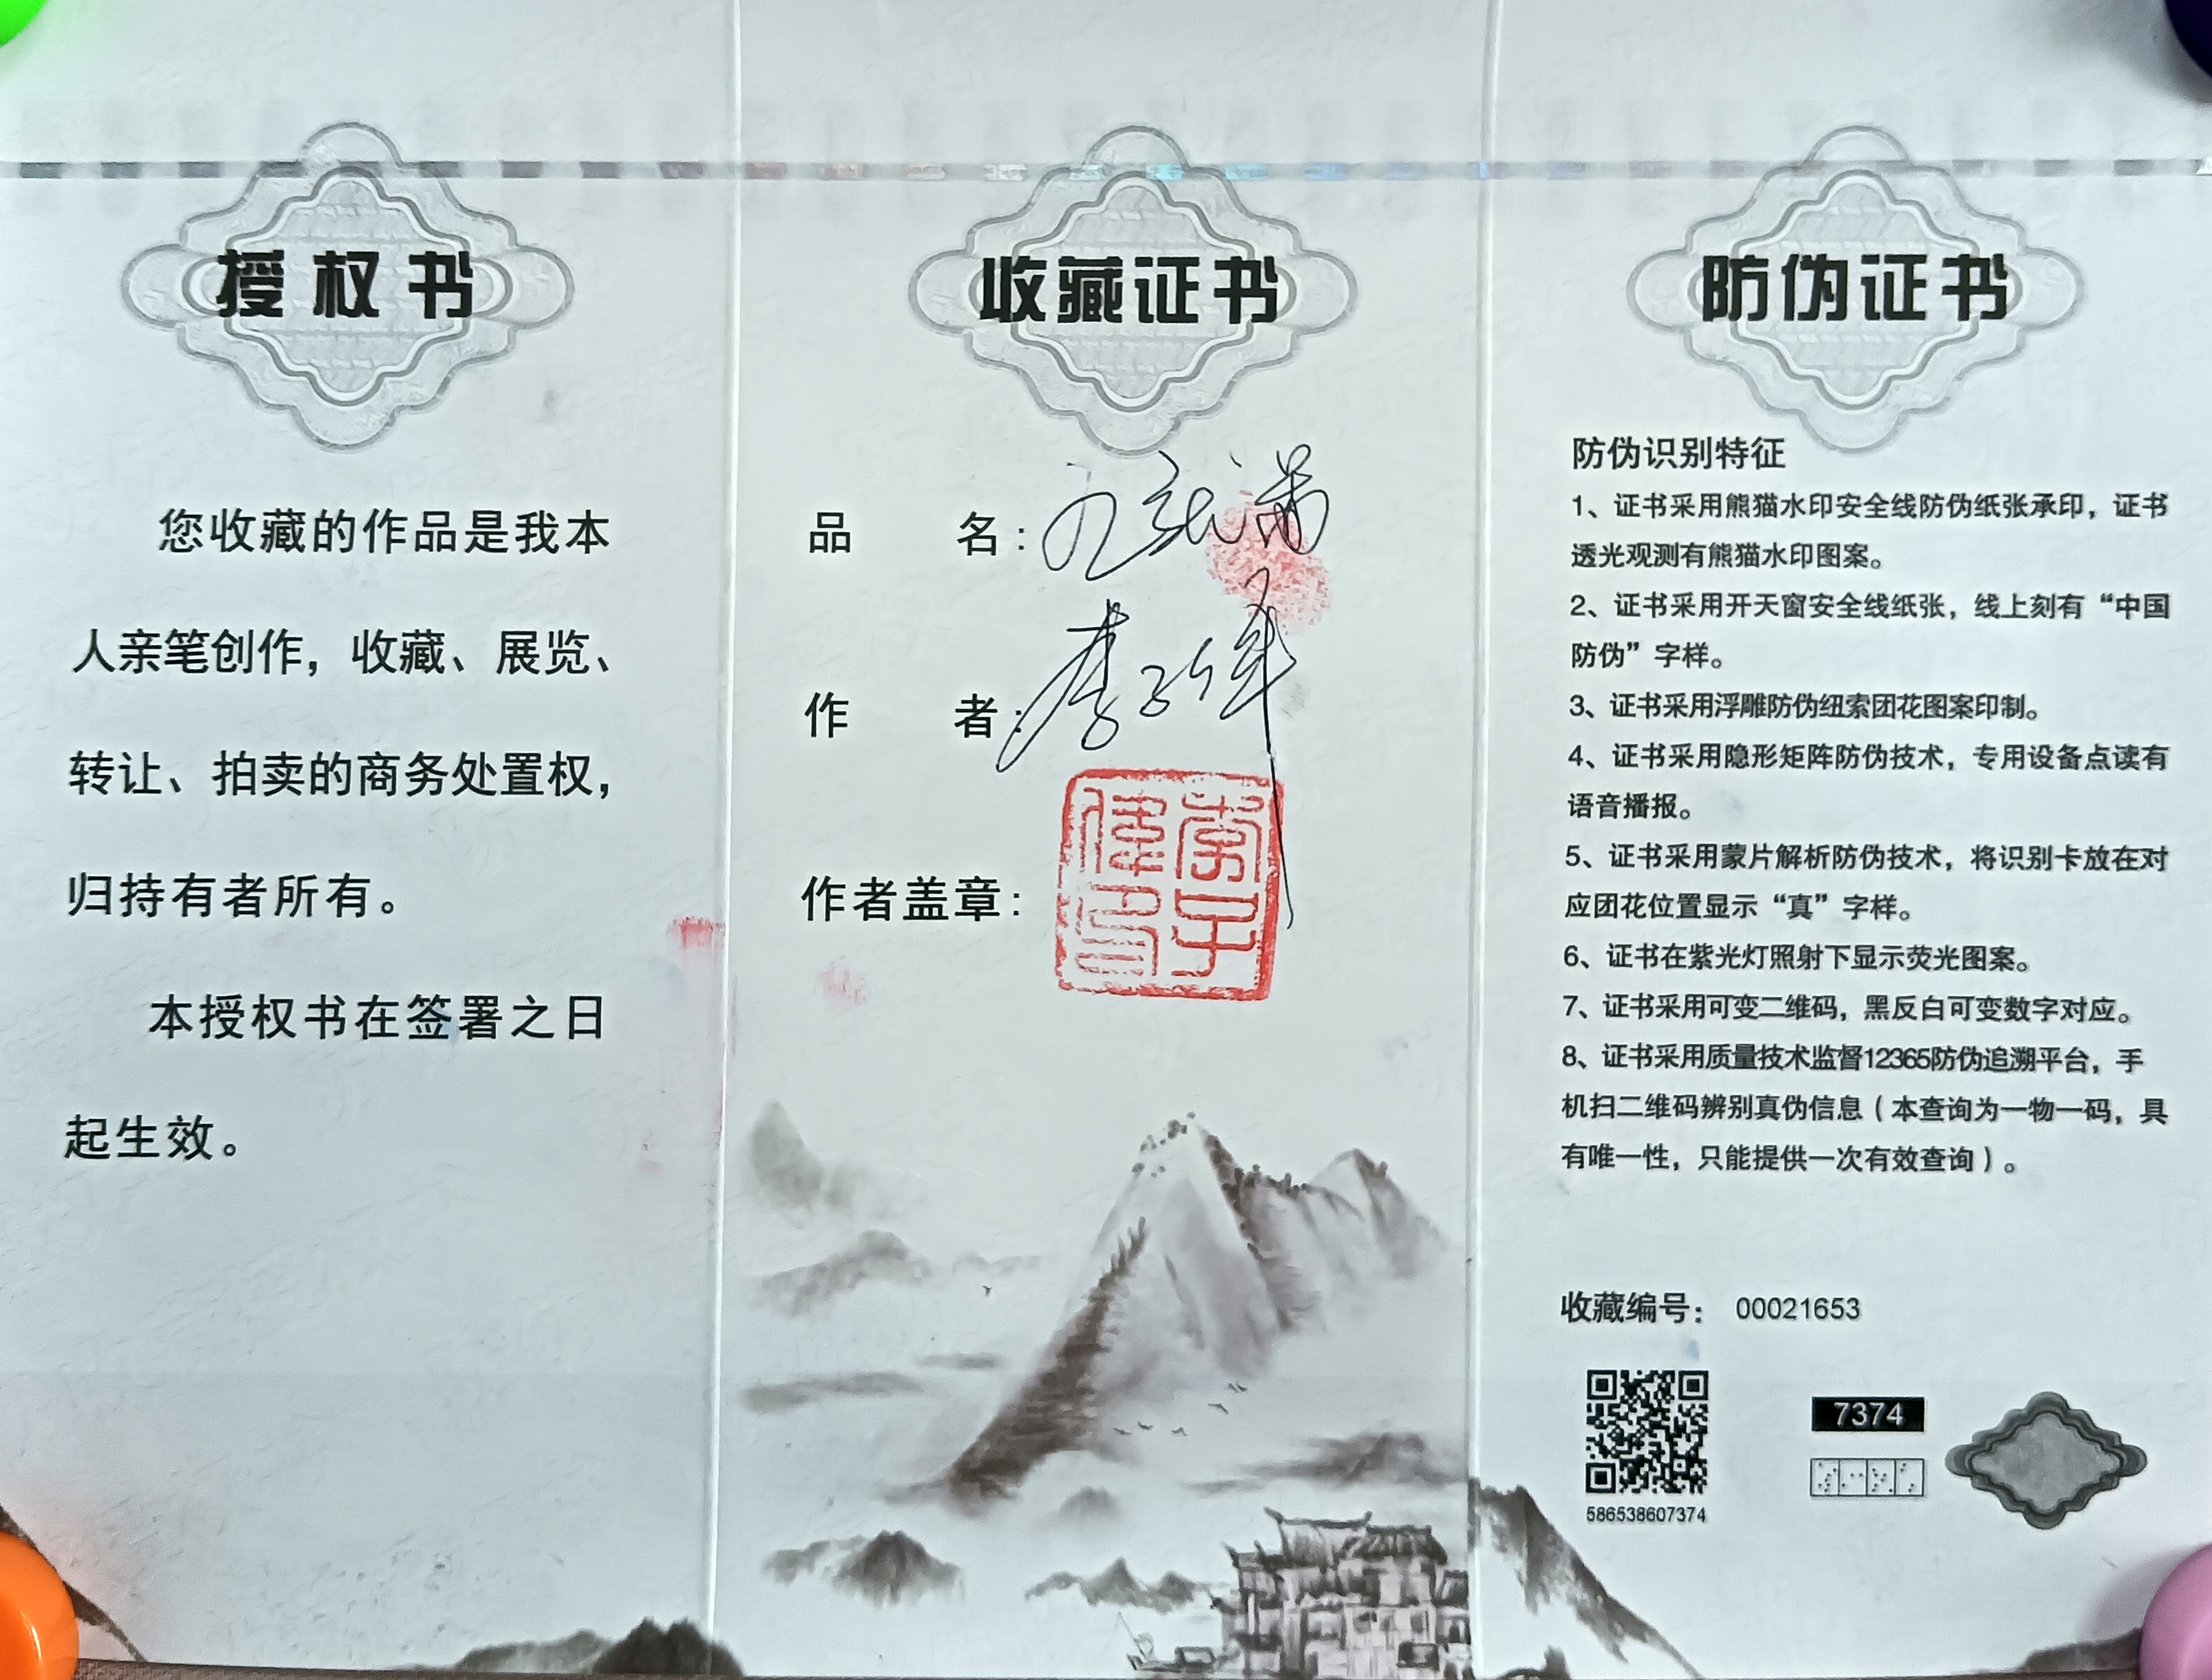 授权书
您收藏的作品是我本
人亲笔创作，收藏、展览、
转让、拍卖的商务处置权，
归持有者所有。
本授权书在签署之日
起生效。
收藏证书
品名：
作者：李子伟
作者盖章：
李子偉印
防伪证书
防伪识别特征
1、证书采用熊猫水印安全线防伪纸张承印，证书
透光观测有熊猫水印图案。
2、证书采用开天窗安全线纸张，线上刻有“中国
防伪”字样。
3、证书采用浮雕防伪纽索团花图案印制。
4、证书采用隐形矩阵防伪技术，专用设备点读有
语音播报。
5、证书采用蒙片解析防伪技术，将识别卡放在对
应团花位置显示“真”字样。
6、证书在紫光灯照射下显示荧光图案。
7、证书采用可变二维码，黑反白可变数字对应。
8、证书采用质量技术监督12365防伪追溯平台，手
机扫二维码辨别真伪信息（本查询为一物一码，具
有唯一性，只能提供一次有效查询）。
收藏编号： 00021653
7374
586538607374